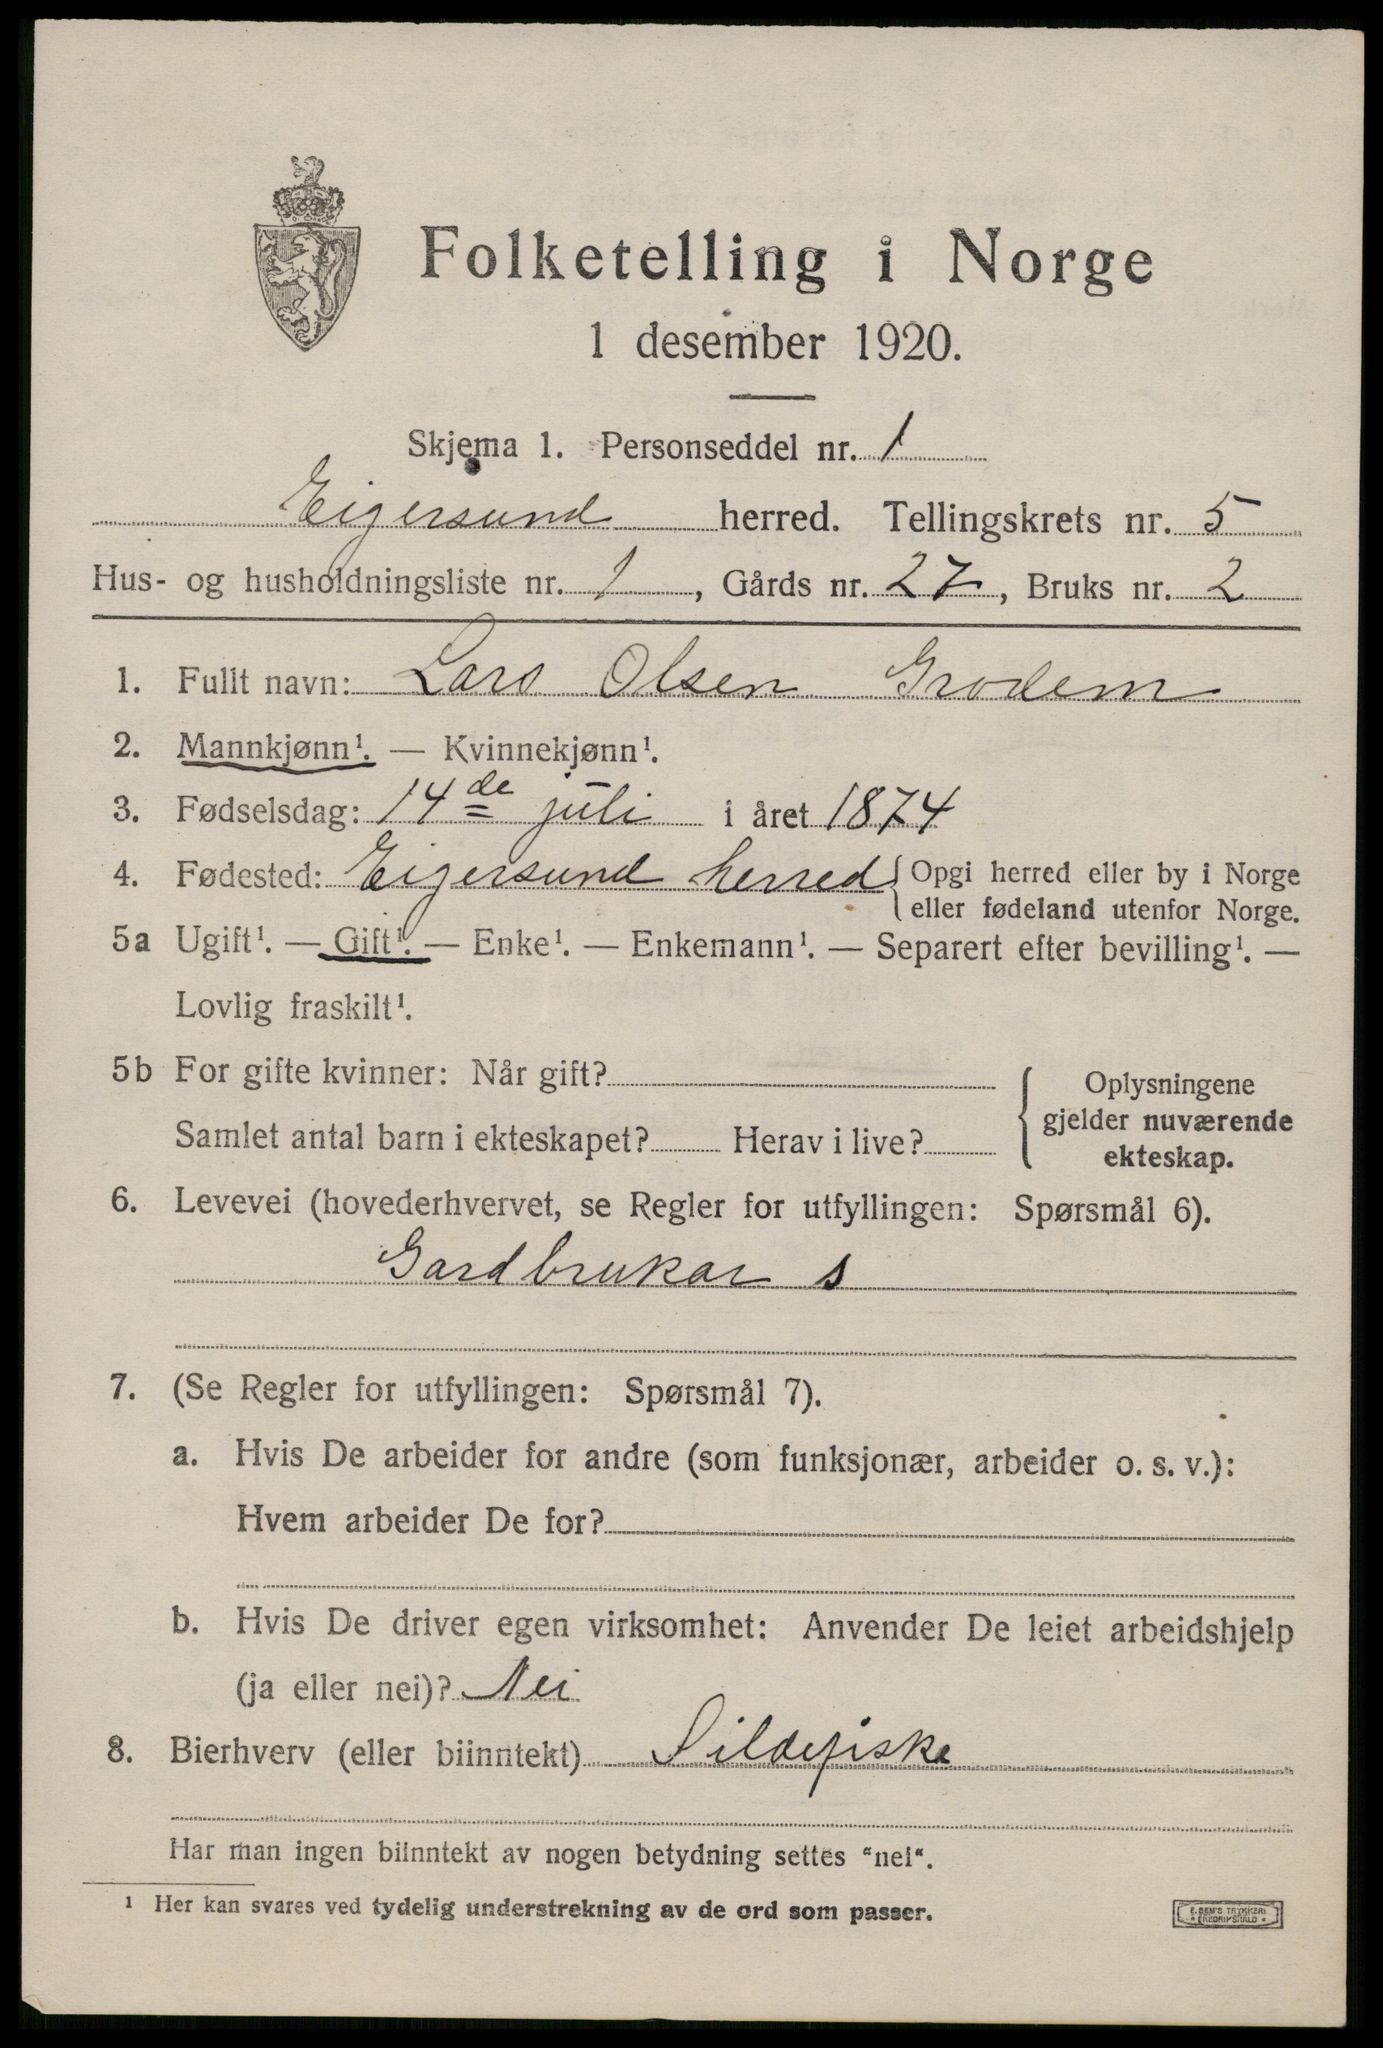 Folketelling i Norge
1 desember 1920.
Skjema 1. Personseddel nr. 1
Eigersund herred. Tellingskrets nr. 5
Hus- og husholdningsliste nr. 1, Gårds nr. 27, Bruks nr. 2
1. Fullt navn: Lars Olsen Grodem
2. Mannkjønn¹. — Kvinnekjønn¹.
3. Fødselsdag: 14de juli i året 1874
4. Fødested: Eigersund herred { Opgi herred eller by i Norge
eller fødeland utenfor Norge.
5a Ugift¹. — Gift¹. — Enke¹. — Enkemann¹. — Separert efter bevilling¹. —
Lovlig fraskilt¹.
5b For gifte kvinner: Når gift?
Samlet antal barn i ekteskapet? Herav i live?
{ Oplysningene
gjelder nuværende
ekteskap.
6. Levevei (hovederhvervet, se Regler for utfyllingen: Spørsmål 6).
Gardbrukar s
7. (Se Regler for utfyllingen: Spørsmål 7).
a. Hvis De arbeider for andre (som funksjonær, arbeider o. s. v.):
Hvem arbeider De for?
b. Hvis De driver egen virksomhet: Anvender De leiet arbeidshjelp
(ja eller nei)? Nei
8. Bierhverv (eller biinntekt) Sildefiske
Har man ingen biinntekt av nogen betydning settes "nei".
¹ Her kan svares ved tydelig understrekning av de ord som passer.
E. SEM'S TRYKKERI
* FREDRIKSHALD *